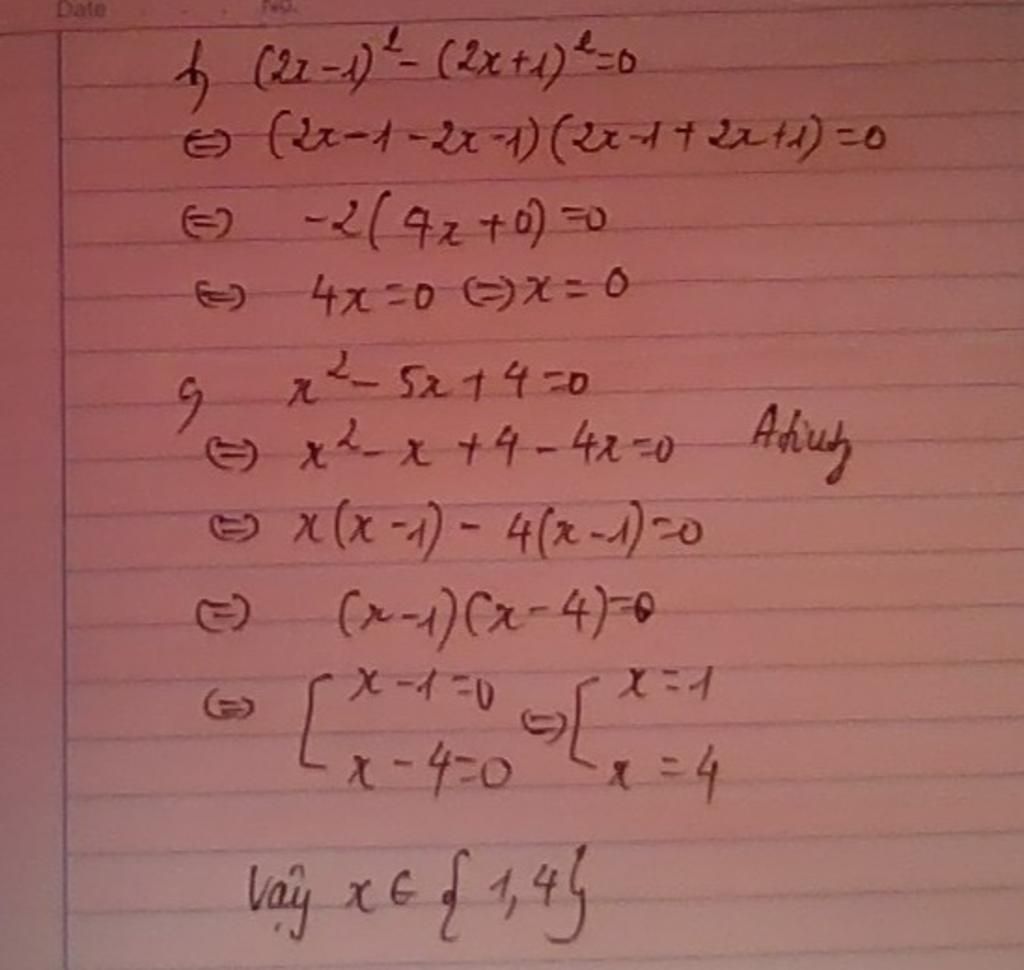 Date No.
h) (2x-1)² - (2x+1)² = 0
⇔ (2x-1-2x-1)(2x-1+2x+1) = 0
⇔ -2(4x+0) = 0
⇔ 4x = 0 ⇔ x = 0
g) x² - 5x + 4 = 0
⇔ x² - x + 4 - 4x = 0
⇔ x(x-1) - 4(x-1) = 0
⇔ (x-1)(x-4) = 0
⇔ [ x-1=0 ⇔ [ x=1
x-4=0 x=4
Vậy x ∈ {1,4}